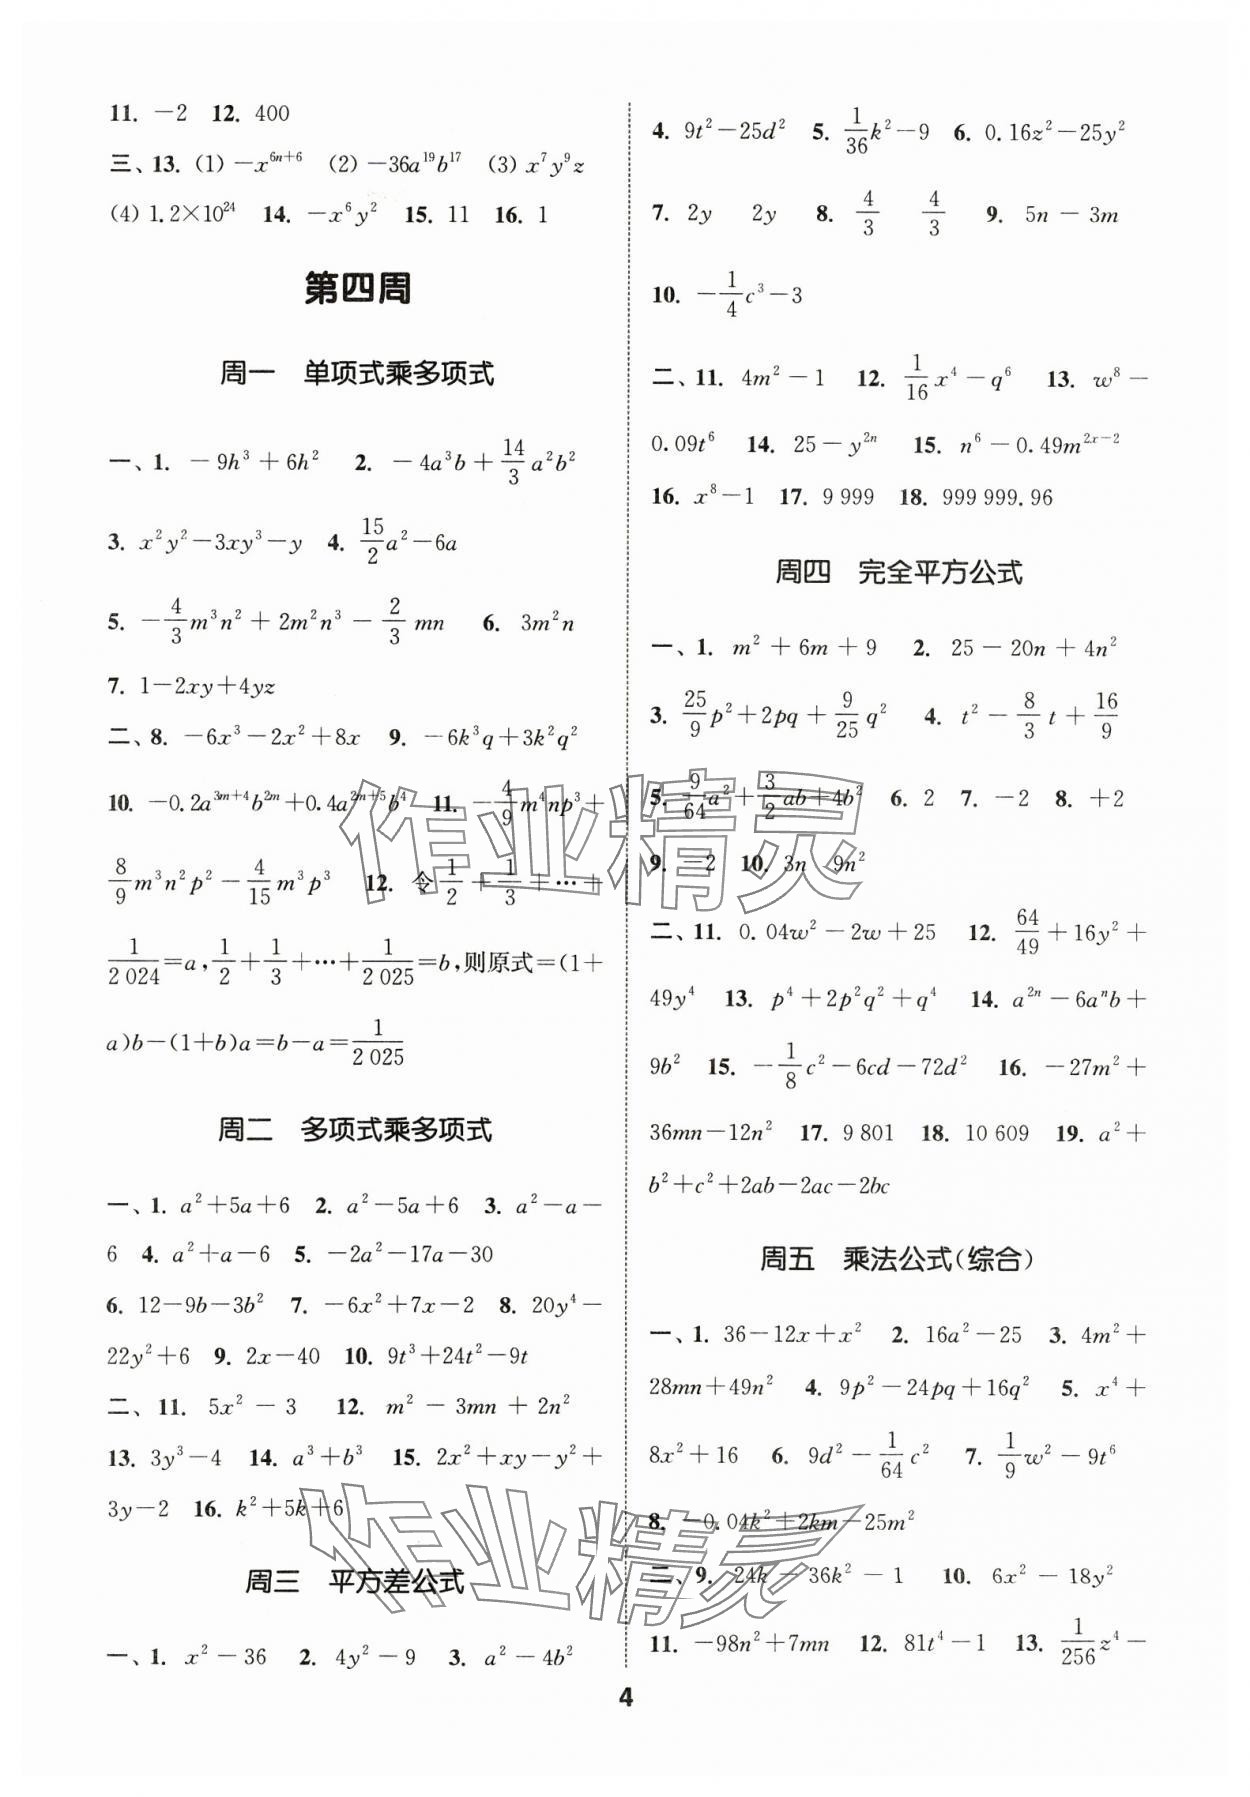 11. －2　12. 400
三、13. (1) －x^{6n＋6}　(2) －36a^{19}b^{17}　(3) x^7y^9z
(4) 1.2×10^{24}　14. －x^6y^2　15. 11　16. 1
第四周
周一　单项式乘多项式
一、1. －9h^3＋6h^2　2. －4a^3b＋\frac{14}{3}a^2b^2
3. x^2y^2－3xy^3－y　4. \frac{15}{2}a^2－6a
5. －\frac{4}{3}m^3n^2＋2m^2n^3－\frac{2}{3}mn　6. 3m^2n
7. 1－2xy＋4yz
二、8. －6x^3－2x^2＋8x　9. －6k^3q＋3k^2q^2
10. －0.2a^{3m＋4}b^{2m}＋0.4a^{2m＋5}b^4　11. －\frac{4}{9}m^4np^3＋
\frac{8}{9}m^3n^2p^2－\frac{4}{15}m^3p^3　12. 令\frac{1}{2}＋\frac{1}{3}＋…＋
\frac{1}{2 024}＝a,\frac{1}{2}＋\frac{1}{3}＋…＋\frac{1}{2 025}＝b,则原式＝(1＋
a)b－(1＋b)a＝b－a＝\frac{1}{2 025}
周二　多项式乘多项式
一、1. a^2＋5a＋6　2. a^2－5a＋6　3. a^2－a－
6　4. a^2＋a－6　5. －2a^2－17a－30
6. 12－9b－3b^2　7. －6x^2＋7x－2　8. 20y^4－
22y^2＋6　9. 2x－40　10. 9t^3＋24t^2－9t
二、11. 5x^2－3　12. m^2－3mn＋2n^2
13. 3y^3－4　14. a^3＋b^3　15. 2x^2＋xy－y^2＋
3y－2　16. k^2＋5k＋6
周三　平方差公式
一、1. x^2－36　2. 4y^2－9　3. a^2－4b^2
4. 9t^2－25d^2　5. \frac{1}{36}k^2－9　6. 0.16z^2－25y^2
7. 2y　2y　8. \frac{4}{3}　\frac{4}{3}　9. 5n－3m
10. －\frac{1}{4}c^3－3
二、11. 4m^2－1　12. \frac{1}{16}x^4－q^6　13. w^8－
0.09t^6　14. 25－y^{2n}　15. n^6－0.49m^{2x－2}
16. x^8－1　17. 9 999　18. 999 999.96
周四　完全平方公式
一、1. m^2＋6m＋9　2. 25－20n＋4n^2
3. \frac{25}{9}p^2＋2pq＋\frac{9}{25}q^2　4. t^2－\frac{8}{3}t＋\frac{16}{9}
5. \frac{9}{64}a^2＋\frac{3}{2}ab＋4b^2　6. 2　7. －2　8. ＋2
9. －2　10. 3n　9n^2
二、11. 0.04w^2－2w＋25　12. \frac{64}{49}＋16y^2＋
49y^4　13. p^4＋2p^2q^2＋q^4　14. a^{2n}－6a^nb＋
9b^2　15. －\frac{1}{8}c^2－6cd－72d^2　16. －27m^2＋
36mn－12n^2　17. 9 801　18. 10 609　19. a^2＋
b^2＋c^2＋2ab－2ac－2bc
周五　乘法公式(综合)
一、1. 36－12x＋x^2　2. 16a^2－25　3. 4m^2＋
28mn＋49n^2　4. 9p^2－24pq＋16q^2　5. x^4＋
8x^2＋16　6. 9d^2－\frac{1}{64}c^2　7. \frac{1}{9}w^2－9t^6
8. －0.04k^2＋2km－25m^2
二、9. 24k－36k^2－1　10. 6x^2－18y^2
11. －98n^2＋7mn　12. 81t^4－1　13. \frac{1}{256}z^4－
4
作业精灵
作业精灵